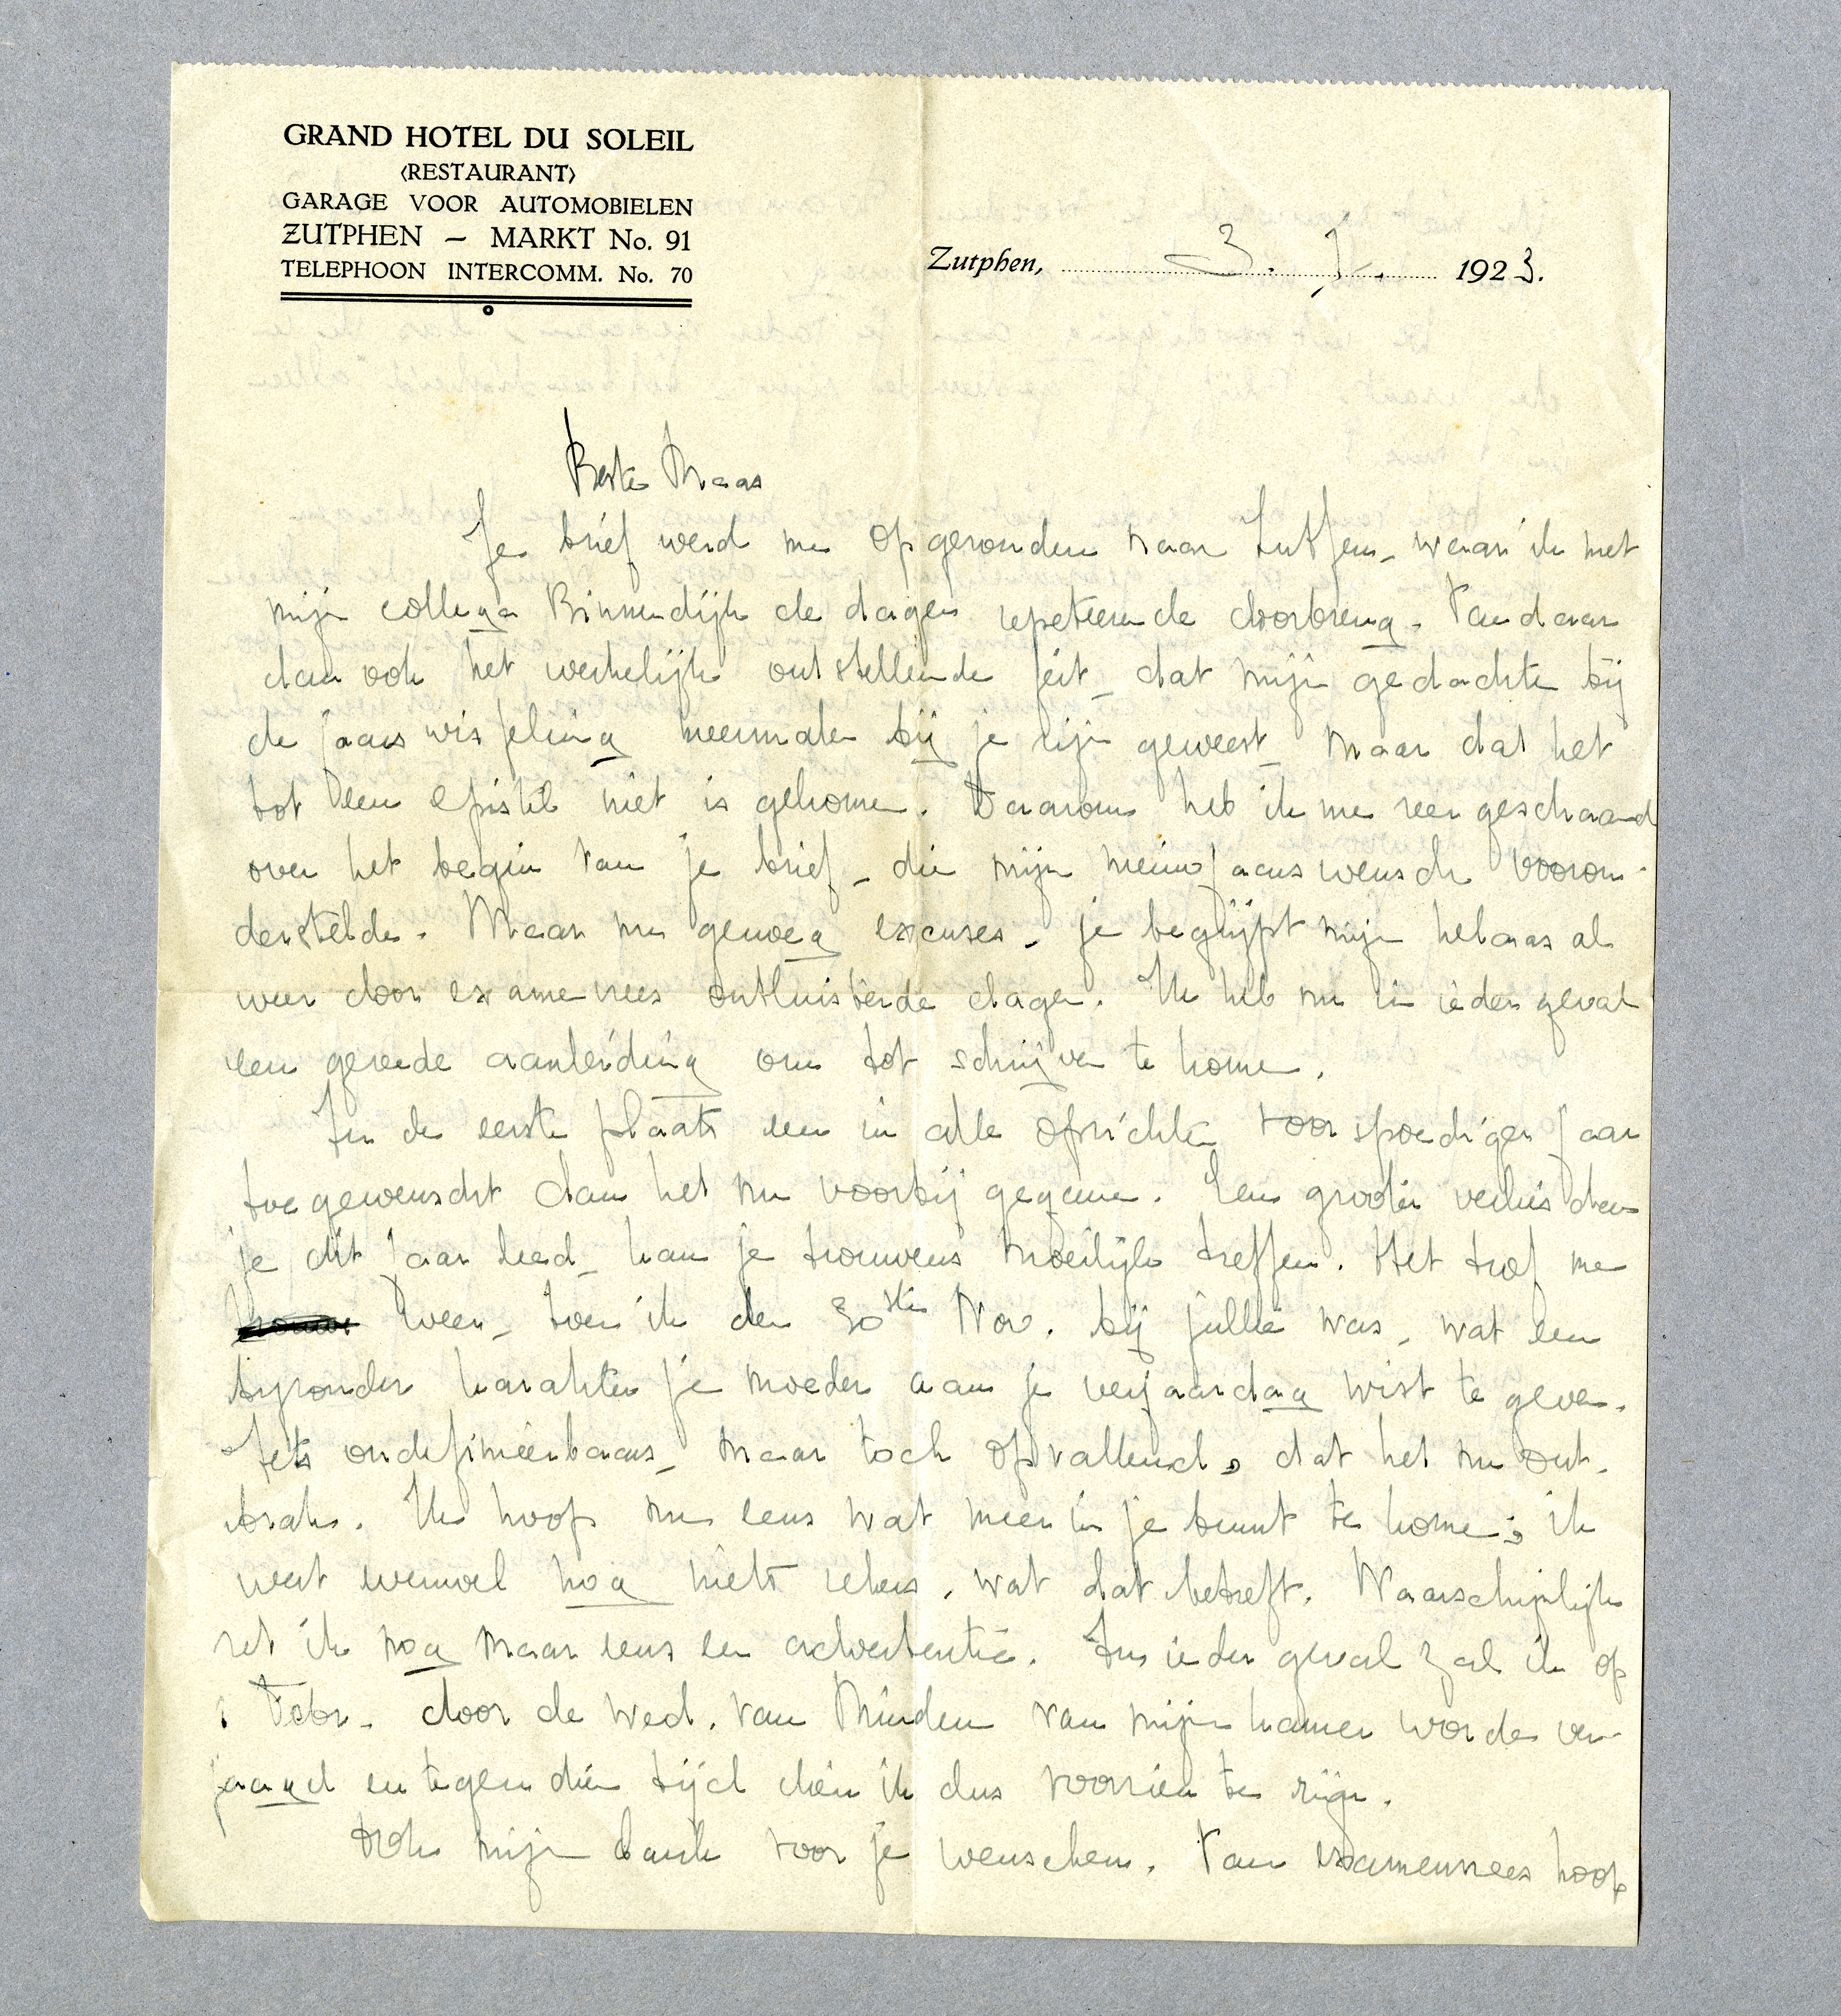 GRAND HOTEL DU SOLEIL
<RESTAURANT>
GARAGE VOOR AUTOMOBIELEN
ZUTPHEN – MARKT No. 91
TELEPHOON INTERCOMM. No. 70
Zutphen, 3. I. 1923.
Beste Maas
Je brief werd me opgezonden naar Zutfen, waar ik met
mijn collega Binnendijk de dagen repeteerende doorbreng. Vandaar
dan ook het werkelijk ontstellende feit, dat mijn gedachte bij
de jaarswisseling meermalen bij je zijn geweest, maar dat het
tot een epistel niet is gekomen. Daarom heb ik me zeer geschaamd
over het begin van je brief, die mijn nieuwjaarswensch vooron-
derstelde. Maar nu genoeg excuses, je begrijpt mijn helaas al
weer door examenvrees ontluisterde dagen. Ik heb nu in ieder geval
een gereede aanleiding om tot schrijven te komen.
In de eerste plaats een in alle opzichten voorspoediger jaar
toegewenscht dan het nu voorbij gegane. Een grooter verlies dan
je dit jaar leed, kan je trouwens moeilijk treffen. Het trof me
weer, toen ik den 30sten Nov. bij jullie was, wat een
byzonder karakter je moeder aan je verjaardag wist te geven.
Iets ondefinieerbaars, maar toch opvallend, dat het nu ont-
brak. Ik hoop nu eens wat meer in je buurt te komen; ik
weet evenwel nog niets zekers, wat dat betreft. Waarschijnlijk
zet ik nog maar eens een advertentie. In ieder geval zal ik op
1 Febr. door de Wed. van Minden van mijn kamer worden ver-
jaagd en tegen dien tijd dien ik dus voorzien te zijn.
Ook mijn dank voor je wenschen. Van examenvrees hoop